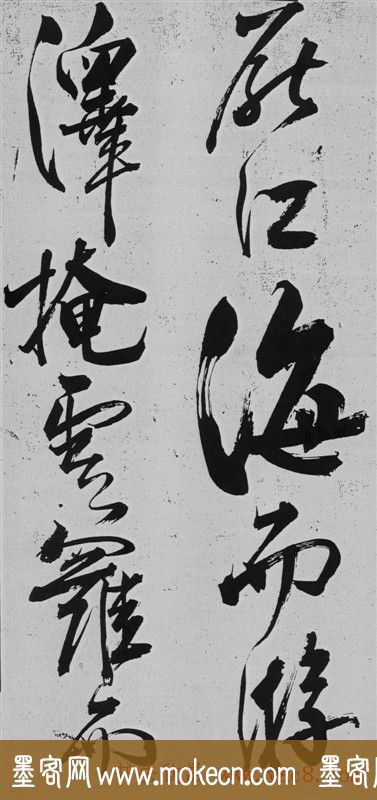 厭江海而游
澤掩雲羅而
墨客网 www.mokecn.com 墨客网